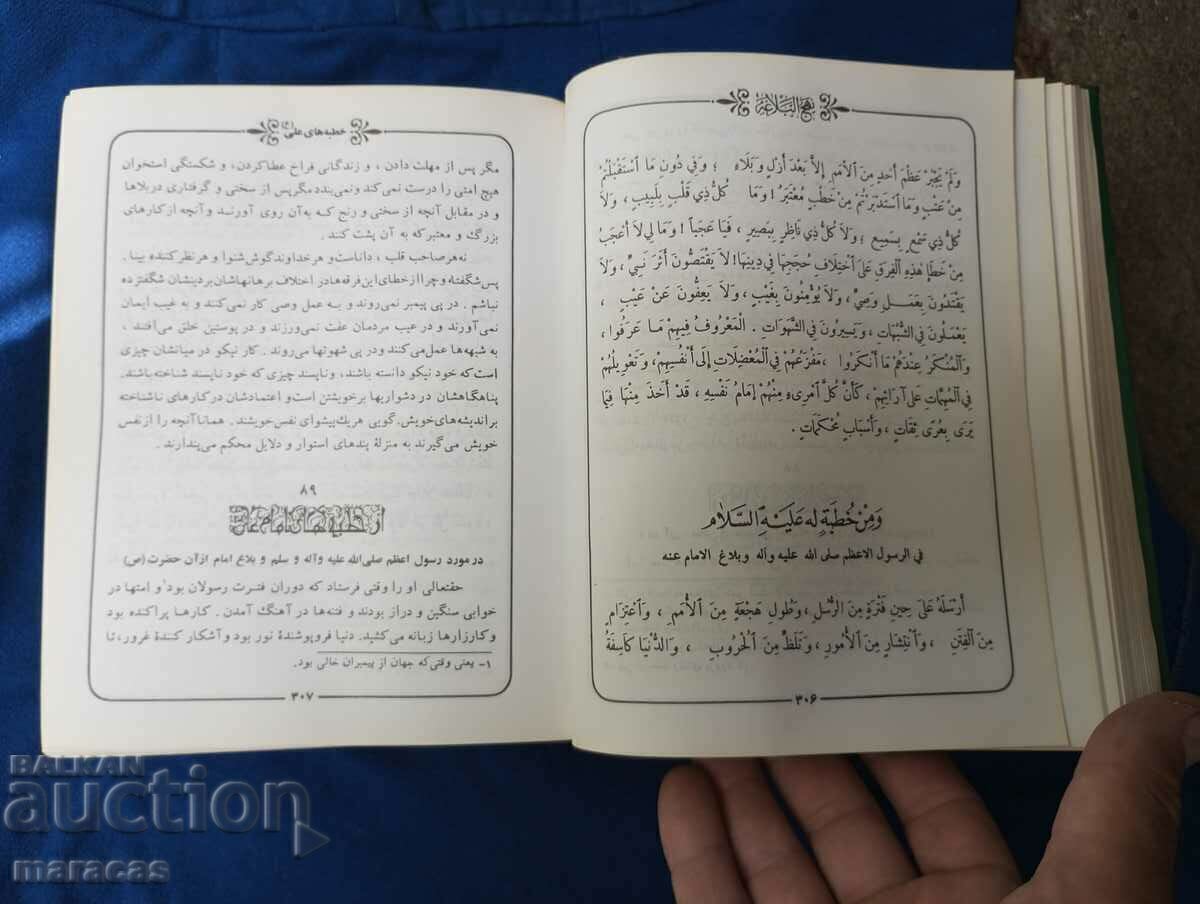 نهج البلاغة
وَلَمْ يَجْبُرْ عَظْمَ أَحَدٍ مِنَ الأُمَمِ إِلاَّ بَعْدَ أَزْلٍ وَبَلَاءٍ ؛ وَفِي دُونِ مَا اسْتَقْبَلْتُمْ
مِنْ عَتْبٍ وَمَا اسْتَدْبَرْتُمْ مِنْ خَطْبٍ مُعْتَبَرٌ ! وَمَا كُلُّ ذِي قَلْبٍ بِلَبِيبٍ ، وَلاَ
كُلُّ ذِي سَمْعٍ بِسَمِيعٍ ؛ وَلاَ كُلُّ ذِي نَاظِرٍ بِبَصِيرٍ ، فَيَا عَجَباً ! وَمَا لِي لاَ أَعْجَبُ
مِنْ خَطَإِ هٰذِهِ الْفِرَقِ عَلَى اخْتِلَافِ حُجَجِهَا فِي دِينِهَا ! لاَ يَقْتَصُّونَ أَثَرَ نَبِيٍّ ، وَلاَ
يَقْتَدُونَ بِعَمَلِ وَصِيٍّ ، وَلاَ يُؤْمِنُونَ بِغَيْبٍ ، وَلاَ يَعِفُّونَ عَنْ عَيْبٍ ،
يَعْمَلُونَ فِي الشُّبُهَاتِ ، وَيَسِيرُونَ فِي الشَّهَوَاتِ . الْمَعْرُوفُ فِيهِمْ مَا عَرَفُوا ،
وَالْمُنْكَرُ عِنْدَهُمْ مَا أَنْكَرُوا ، مَفْزَعُهُمْ فِي الْمُعْضِلَاتِ إِلَى أَنْفُسِهِمْ ، وَتَعْوِيلُهُمْ
فِي الْمُهِمَّاتِ عَلَى آرَائِهِمْ ، كَأَنَّ كُلَّ امْرِىءٍ مِنْهُمْ إِمَامُ نَفْسِهِ ، قَدْ أَخَذَ مِنْهَا فِيمَا
يَرَى بِعُرًى ثِقَاتٍ ، وَأَسْبَابٍ مُحْكَمَاتٍ .
وَمِنْ خُطْبَةٍ لَهُ عَلَيْهِ السَّلَامُ
في الرسول الاعظم صلى الله عليه وآله وبلاغ الامام عنه
أَرْسَلَهُ عَلَى حِينِ فَتْرَةٍ مِنَ الرُّسُلِ ، وَطُولِ هَجْعَةٍ مِنَ الأُمَمِ ، وَاعْتِزَامٍ
مِنَ الْفِتَنِ ، وَانْتِشَارٍ مِنَ الأُمُورِ ، وَتَلَظٍّ مِنَ الْحُرُوبِ ، وَالدُّنْيَا كَاسِفَةُ
۳۰۶
خطبه های علی (ع)
مگر پس از مهلت دادن ، و زندگانی فراخ عطاکردن، و شکستگی استخوان
هیچ امتی را درست نمی کند و نمی بندد مگر پس از سختی و گرفتاری در بلاها
و در مقابل آنچه از سختی و رنج که به آن روی آورند و آنچه از کارهای
بزرگ و معتبر که به آن پشت کند .
نه هر صاحب قلب ، داناست و هر خداوند گوش شنوا و هر نظر کننده بینا .
پس شگفتا و چرا از خطای این فرقه ها در اختلاف برهانهاشان بر دینشان شگفتزده
نباشم . در پی پیمبر نمی روند و به عمل وصی کار نمی کنند و به غیب ایمان
نمی آورند و در عیب مردمان عفت نمی ورزند و در پوستین خلق می افتند ،
به شبهه ها عمل می کنند و در پی شهوتها می روند . کار نیکو در میانشان چیزی
است که خود نیکو دانسته باشند، و ناپسند چیزی که خود ناپسند شناخته باشند.
پناهگاهشان در دشواریها بر خویشتن است و اعتمادشان در کارهای ناشناخته
بر اندیشه های خویش. گویی هر یک پیشوای نفس خویشند . همانا آنچه را از نفس
خویش می گیرند به منزلهٔ پندهای استوار و دلایل محکم می پندارند .
۸۹
از خطبه های امام
در مورد رسول اعظم صلی الله علیه وآله و سلم و بلاغ امام از آن حضرت (ص)
حقتعالی او را وقتی فرستاد که دوران فترت رسولان بود۱ و امتها در
خوابی سنگین و دراز بودند و فتنه ها در آهنگ آمدن . کارها پراکنده بود
و کارزارها زبانه می کشید. دنیا فروپوشندهٔ نور بود و آشکار کنندهٔ غرور، تا
۱- یعنی وقتی که جهان از پیمبران خالی بود.
۳۰۷
BALKAN
auction
maracas